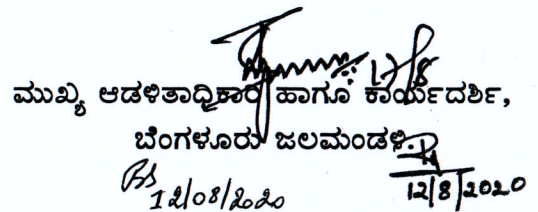 17/8
ಮುಖ್ಯ ಆಡಳಿತಾಧಿಕಾರಿ ಹಾಗೂ ಕಾರ್ಯದರ್ಶಿ,
ಬೆಂಗಳೂರು ಜಲಮಂಡಳಿ.
12/08/2020
12/8/2020